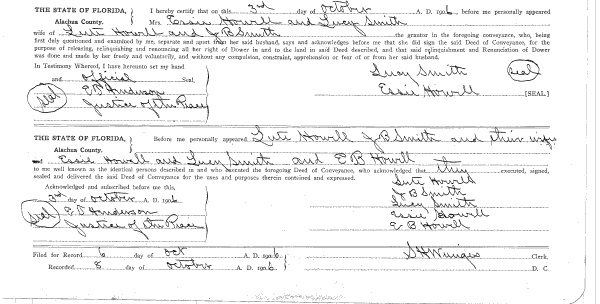 THE STATE OF FLORIDA, I hereby certify that on this 3rd day of October A. D. 1926, before me personally appeared
Alachua County. Mrs. Essie Howell and Lucy Smith
wife of Lute Howell and J B Smith the grantor in the foregoing conveyance, who, being
first duly questioned and examined by me, separate and apart from her said husband, says and acknowledges before me that she did sign the said Deed of Conveyance, for the
purpose of releasing, relinquishing and renouncing all her right of Dower in and to the land in said Deed described, and that said relinquishment and Renunciation of Dower
was done and made by her freely and voluntarily, and without any compulsion, constraint, apprehension or fear of or from her said husband.
In Testimony Whereof, I have hereunto set my hand
and official Seal, Lucy Smith seal
seal E D Anderson Essie Howell [SEAL]
Justice of the Peace
THE STATE OF FLORIDA, Before me personally appeared Lute Howell J B Smith and their wifes
Alachua County. Essie Howell and Lucy Smith and E B Howell
to me well known as the identical persons described in and who executed the foregoing Deed of Conveyance, who acknowledged that they executed, signed,
sealed and delivered the said Deed of Conveyance for the uses and purposes therein contained and expressed.
Acknowledged and subscribed before me this, Lute Howell
3rd day of October A. D. 1926 J B Smith
seal E D Anderson Lucy Smith
Justice of the Peace Essie Howell
E B Howell
Filed for Record 6 day of Oct A. D. 1926 Clerk.
Recorded 8 day of October A. D. 1926 D. C.